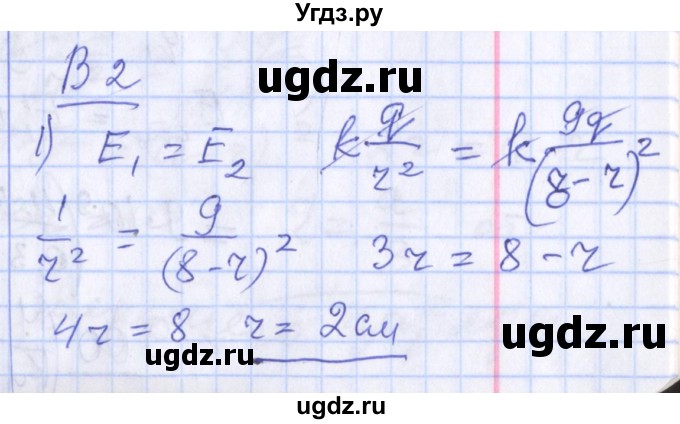 Угдз.ру
В 2
ugdz.ru
1) E₁ = E₂ k q/r² = k 9q/(8-r)²
1/r² = 9/(8-r)² 3r = 8 - r
4r = 8 r = 2 см
ugdz.ru
ugdz.ru
ugdz.ru